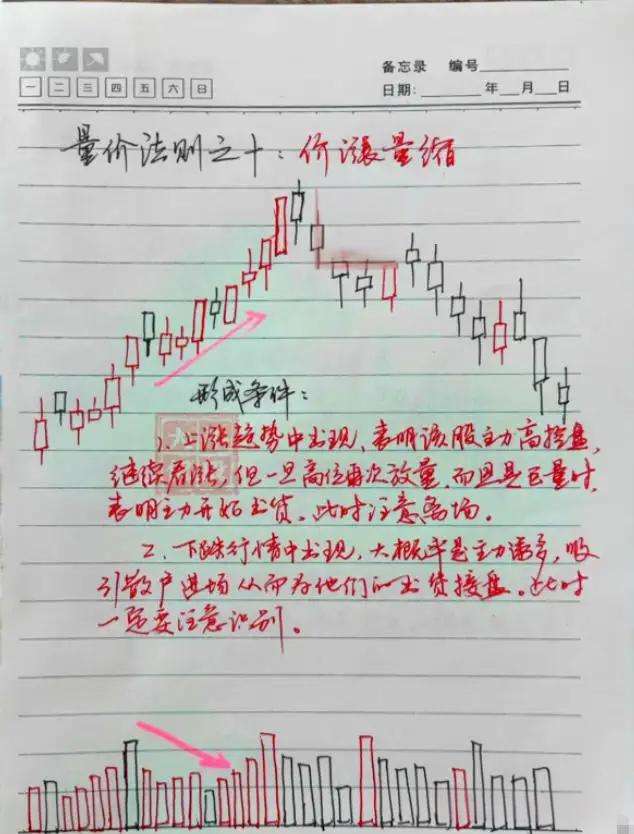 备忘录 编号
一 二 三 四 五 六 日
日期: 年 月 日
量价法则之十：价涨量缩
形成条件：
1、上涨趋势中出现，表明该股主力高控盘，
继续看涨，但一旦高位再次放量，而且是巨量时，
表明主力开始出货。此时注意离场。
2、下跌行情中出现，大概率是主力诱多，吸
引散户进场从而为他们的出货接盘。此时
一定要注意识别。